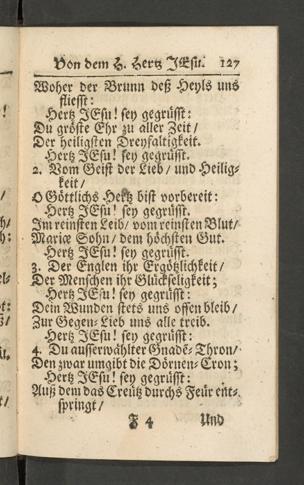 Von dem H. Hertz JEsu. 127
Woher der Brunn deß Heyls uns
fliesst:
Hertz JEsu! sey gegrüsst:
Du gröste Ehr zu aller Zeit/
Der heiligsten Dreyfaltigkeit.
Hertz JEsu! sey gegrüsst.
2. Vom Geist der Lieb/ und Heilig-
keit/
O Göttlichs Hertz bist vorbereit:
Hertz JEsu! sey gegrüsst.
Im reinsten Leib/ vom reinsten Blut/
Mariæ Sohn/ dem höchsten Gut.
Hertz JEsu! sey gegrüsst.
3. Der Englen ihr Ergötzlichkeit/
Der Menschen ihr Glückseligkeit;
Hertz JEsu! sey gegrüsst:
Dein Wunden stets uns offen bleib/
Zur Gegen-Lieb uns alle treib.
Hertz JEsu! sey gegrüsst.
4. Du ausserwählter Gnadē-Thron/
Den zwar umgibt die Dörnen-Cron;
Hertz JEsu! sey gegrüsst:
Auß dem das Creutz durchs Feur ent-
springt/
F 4 Und